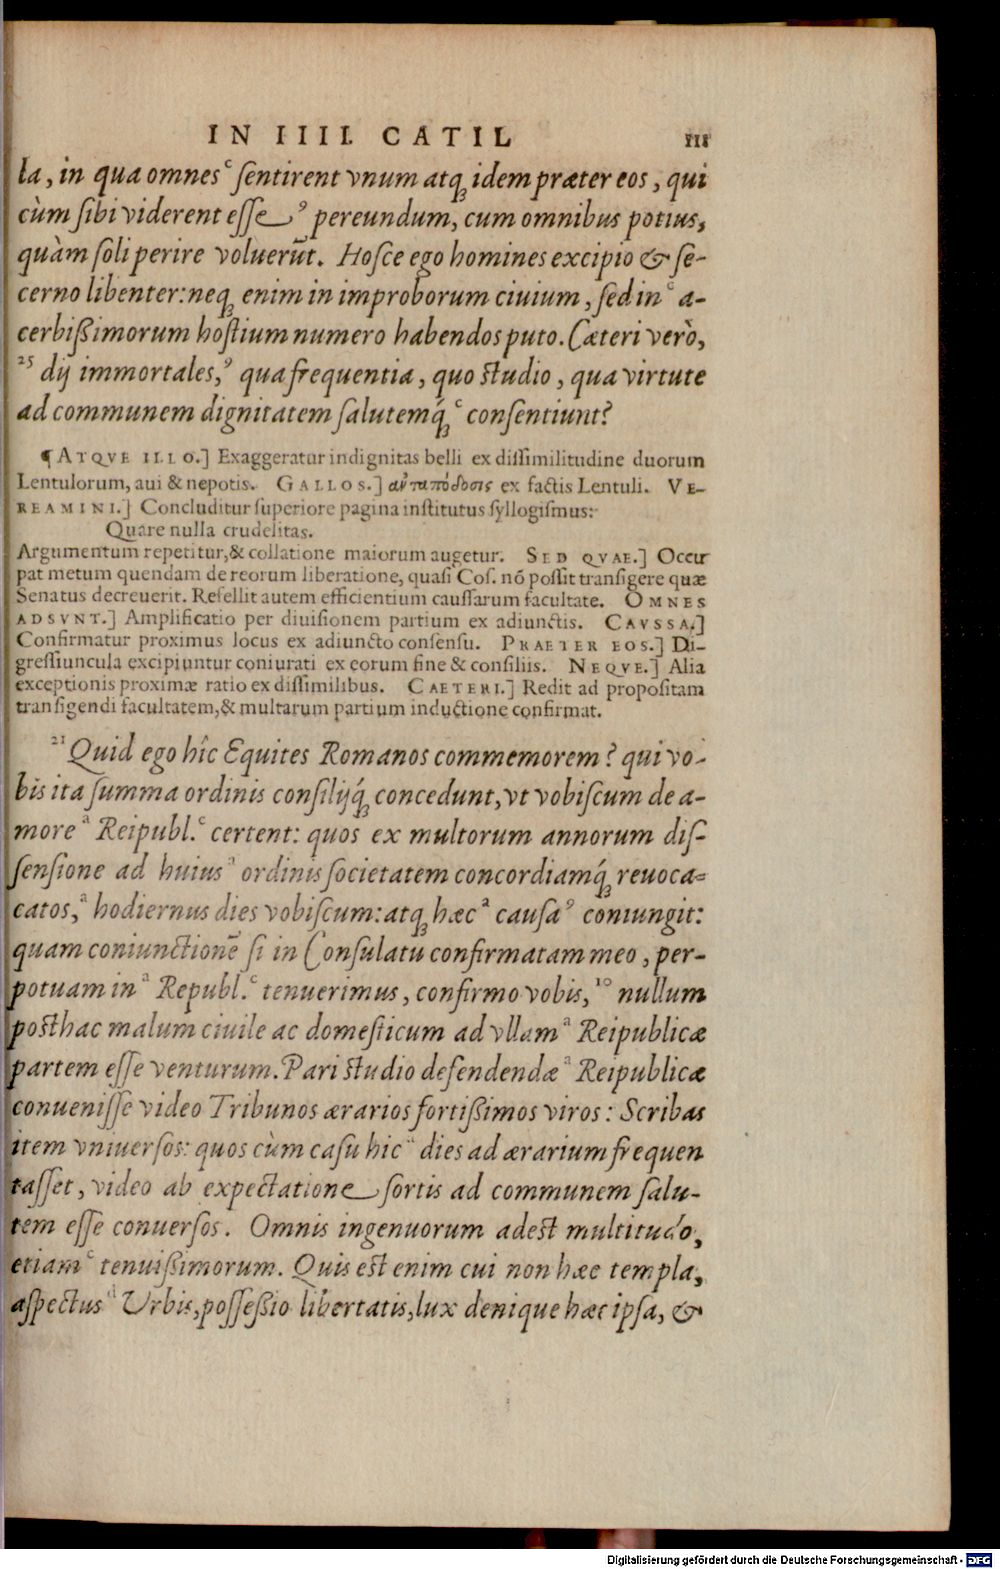 IN IIII. CATIL III
la, in qua omnes ͨ ſentirent vnum atq́ꝫ idem præter eos, qui
cùm ſibi viderent eſſe ꝰ pereundum, cum omnibus potius,
quàm ſoli perire voluerũt. Hoſce ego homines excipio & ſe-
cerno libenter: neqꝫ enim in improborum ciuium, ſed in ͨ a-
cerbißimorum hoſtium numero habendos puto. Cæteri verò,
²⁵ dij immortales, ꝰ qua frequentia, quo ſtudio, qua virtute
ad communem dignitatem ſalutemq́ꝫ ͨ conſentiunt?
¶ ATQVE ILLO.] Exaggeratur indignitas belli ex diſſimilitudine duorum
Lentulorum, aui & nepotis. GALLOS.] ἀνταπόδοσις ex factis Lentuli. VE-
REAMINI.] Concluditur ſuperiore pagina inſtitutus ſyllogiſmus:
Quare nulla crudelitas.
Argumentum repetitur, & collatione maiorum augetur. SED QVAE.] Occur
pat metum quendam de reorum liberatione, quaſi Coſ. nõ poſſit tranſigere quæ
Senatus decreuerit. Refellit autem efficientium cauſſarum facultate. OMNES
ADSVNT.] Amplificatio per diuiſionem partium ex adiunctis. CAVSSA.]
Confirmatur proximus locus ex adiuncto conſenſu. PRAETER EOS.] Di-
greſſiuncula excipiuntur coniurati ex eorum fine & conſiliis. NEQVE.] Alia
exceptionis proximæ ratio ex diſſimilibus. CAETERI.] Redit ad propoſitam
tranſigendi facultatem, & multarum partium inductione confirmat.
²¹ Quid ego hîc Equites Romanos commemorem? qui vo-
bis ita ſumma ordinis conſilijq́ꝫ concedunt, vt vobiſcum de a-
more ᵃ Reipubl. ͨ certent: quos ex multorum annorum diſ-
ſenſione ad huius ᵃ ordinis ſocietatem concordiamq́ꝫ reuoca-
catos, ᵃ hodiernus dies vobiſcum: atqꝫ hæc ᵃ cauſa ꝰ coniungit:
quam coniunctionẽ ſi in Conſulatu confirmatam meo, per-
potuam in ᵃ Republ. ͨ tenuerimus, confirmo vobis, ¹⁰ nullum
poſthac malum ciuile ac domeſticum ad vllam ᵃ Reipublicæ
partem eſſe venturum. Pari ſtudio defendendæ ᵃ Reipublicæ
conueniſſe video Tribunos ærarios fortißimos viros: Scribas
item vniuerſos: quos cùm caſu hic ᵃ dies ad ærarium frequen
taſſet, video ab expectatione ſortis ad communem ſalu-
tem eſſe conuerſos. Omnis ingenuorum adeſt multitudo,
etiam ͨ tenuißimorum. Quis eſt enim cui non hæc templa,
aſpectus ᵈ Vrbis, poſſeßio libertatis, lux denique hæc ipſa, &
Digitalisierung gefördert durch die Deutsche Forschungsgemeinschaft - DFG